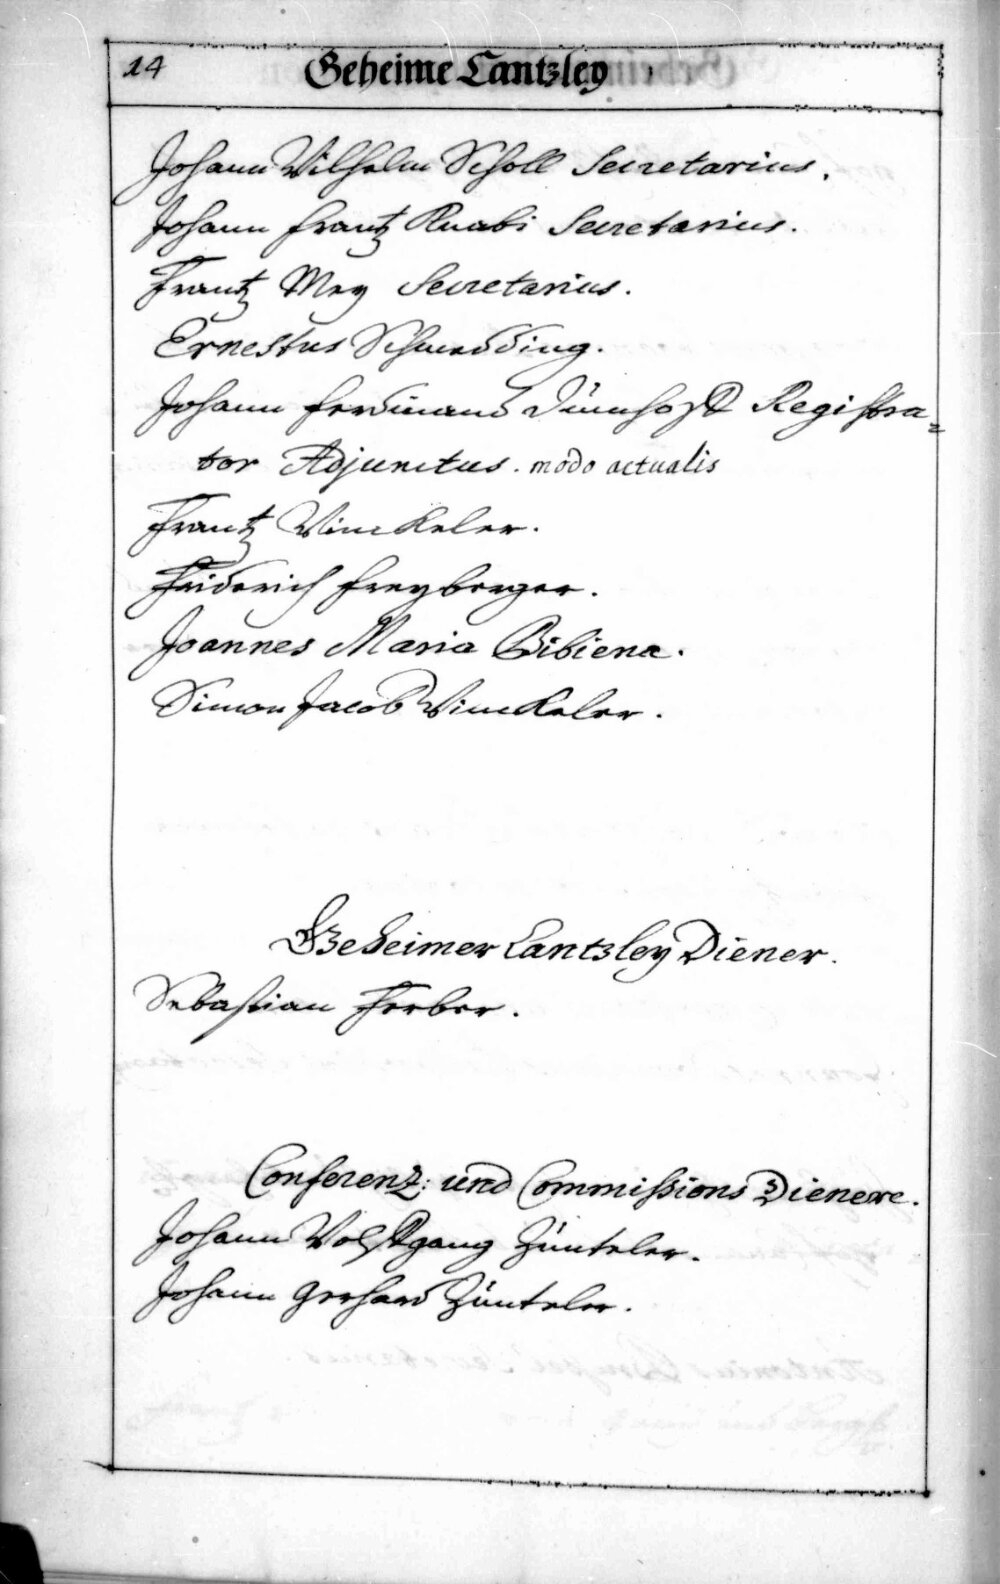 14 Geheime Cantzley
Johann Wilhelm Scholl Secretarius.
Johann Frantz Knabi Secretarius.
Frantz Mey Secretarius.
Ernestus Schmedding.
Johann Ferdinand Registra=
tor Adjunctus. modo actualis
Frantz Winckeler.
Friderich Freyberger.
Joannes Maria Bibiena.
Simon Jacob Winckeler.
Geheimer Cantzley Diener.
Sebastian Ferber.
Conferenz: und Commissions Dienere.
Johann Wolffgang Zünteler.
Johann Gerhard Zünteler.